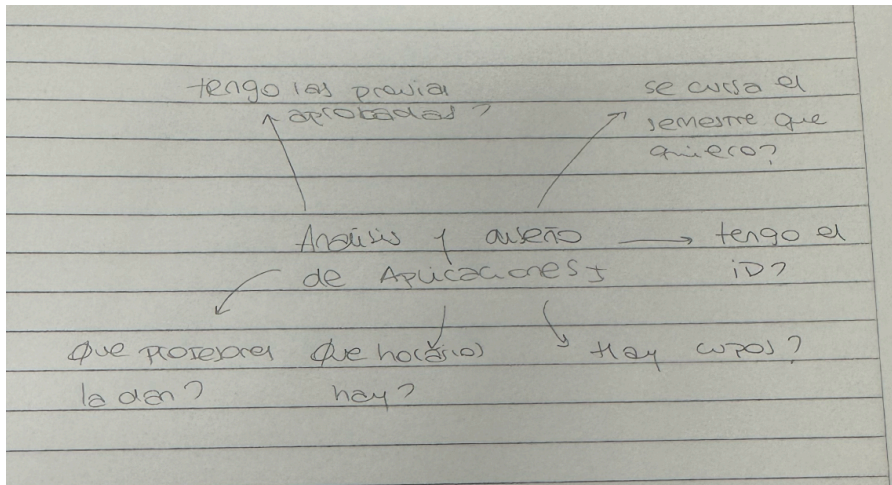 tengo las previas
aprobadas?
se cursa el
semestre que
quiero?
Análisis y diseño
de Aplicaciones I
tengo el
iD?
Que profesores
la dan?
Que horarios
hay?
Hay cupos?